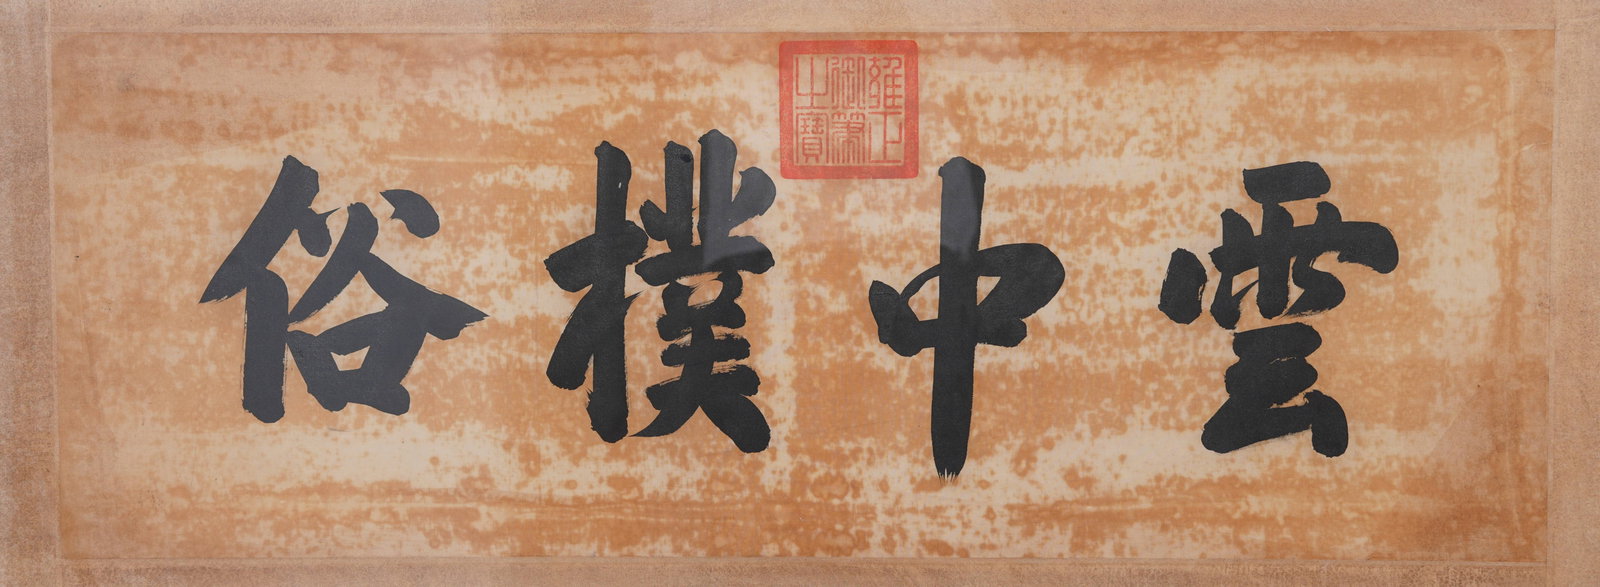 雲中樸俗
雍正
御筆
之寶